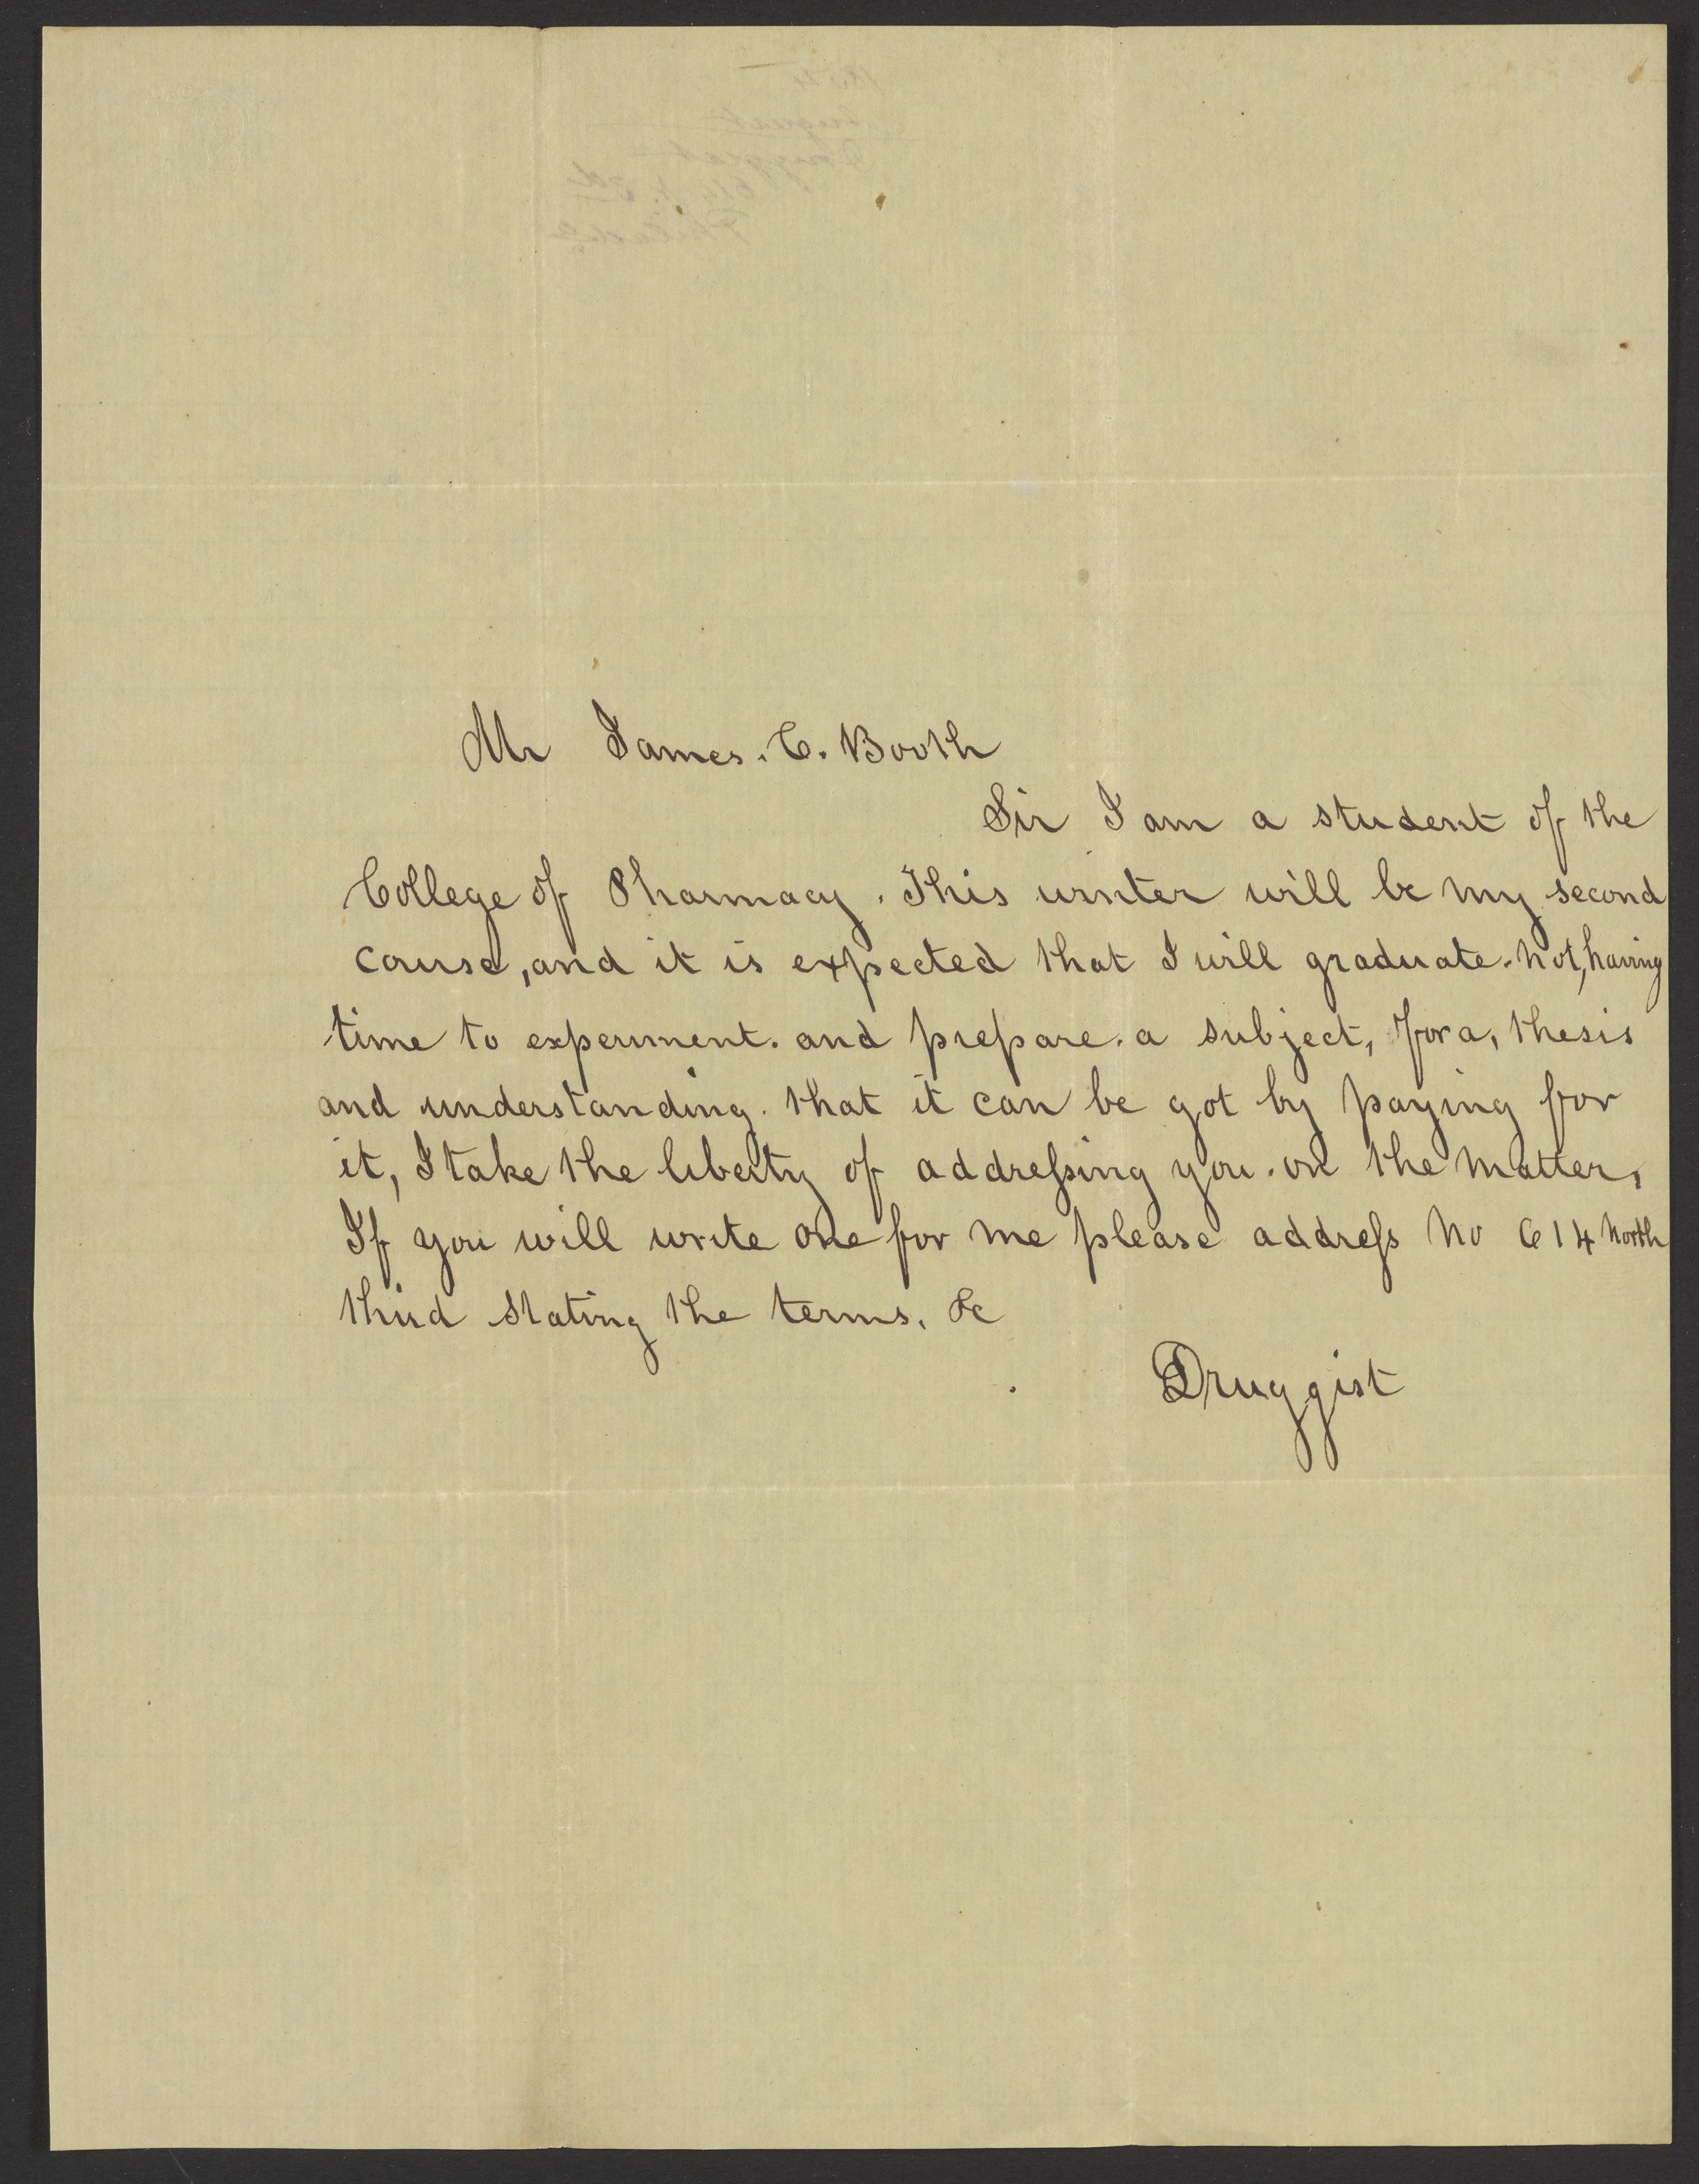 Mr James. C. Booth
Sir I am a student of the
College of Pharmacy. This winter will be my second
course, and it is expected that I will graduate. not, having
time to experiment. and prepare. a subject, for a, thesis
and understanding. that it can be got by paying for
it, I take the liberty of addreſsing you. on the matter,
If you will write one for me please addreſs No 614 North
third stating the terms. &c
Druggist